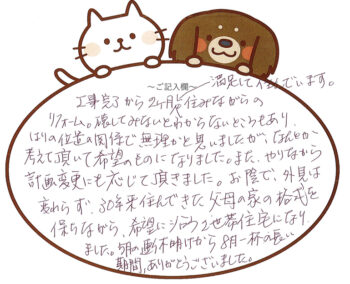 ~ご記入欄~
満足して住んでいます。
工事完了から2ヶ月、住みながらの
リフォーム。壊してみないとわからないところもあり、
はりの位置の関係で無理かと思いましたが、なんとか
考えて頂いて希望のものになりました。また、やりながら
計画変更にも応じて頂きました。お陰で、外見は
変わらず、30年来住んできた父母の家の格式を
保ちながら、希望に沿う2世帯住宅になり
ました。5月の連休明けから8月一杯の長い
期間、ありがとうございました。